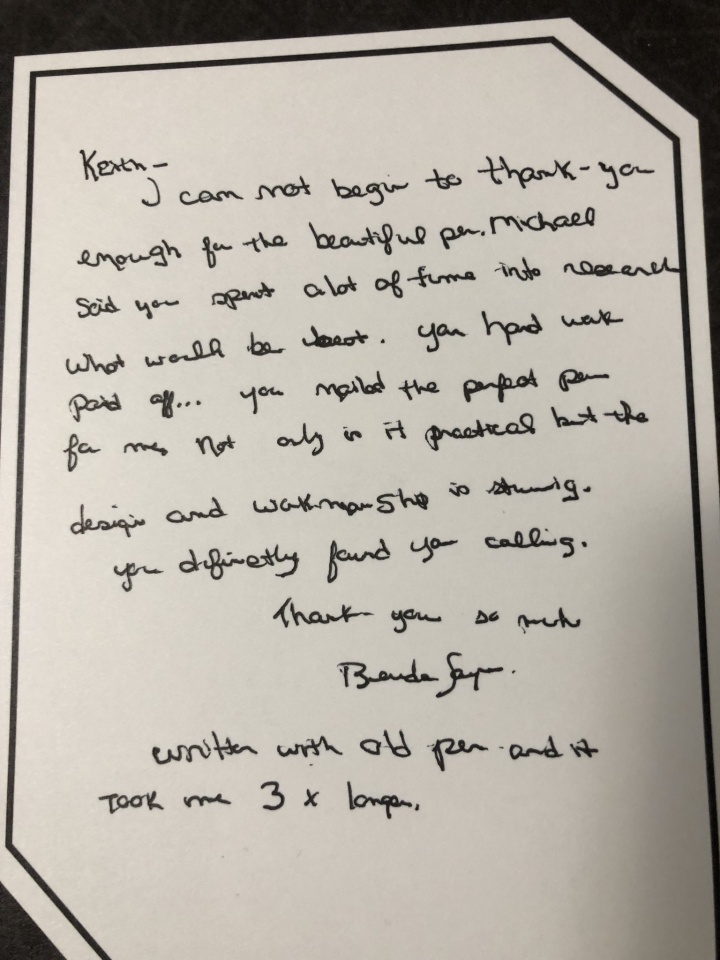 Keith-
I can not begin to thank-you
enough for the beautiful pen. Michael
said you spent alot of time into research
what would be best. your hard work
paid off... you nailed the perfect pen
for me, Not only is it practical but the
design and workmanship is stunning.
you definetly found your calling.
Thank you so much
Brenda
written with old pen and it
TOOK me 3 x longer.